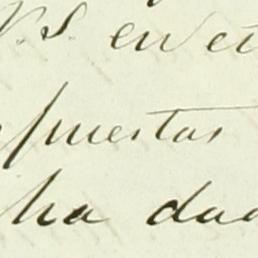 V.S. en et
puestas
ha dad